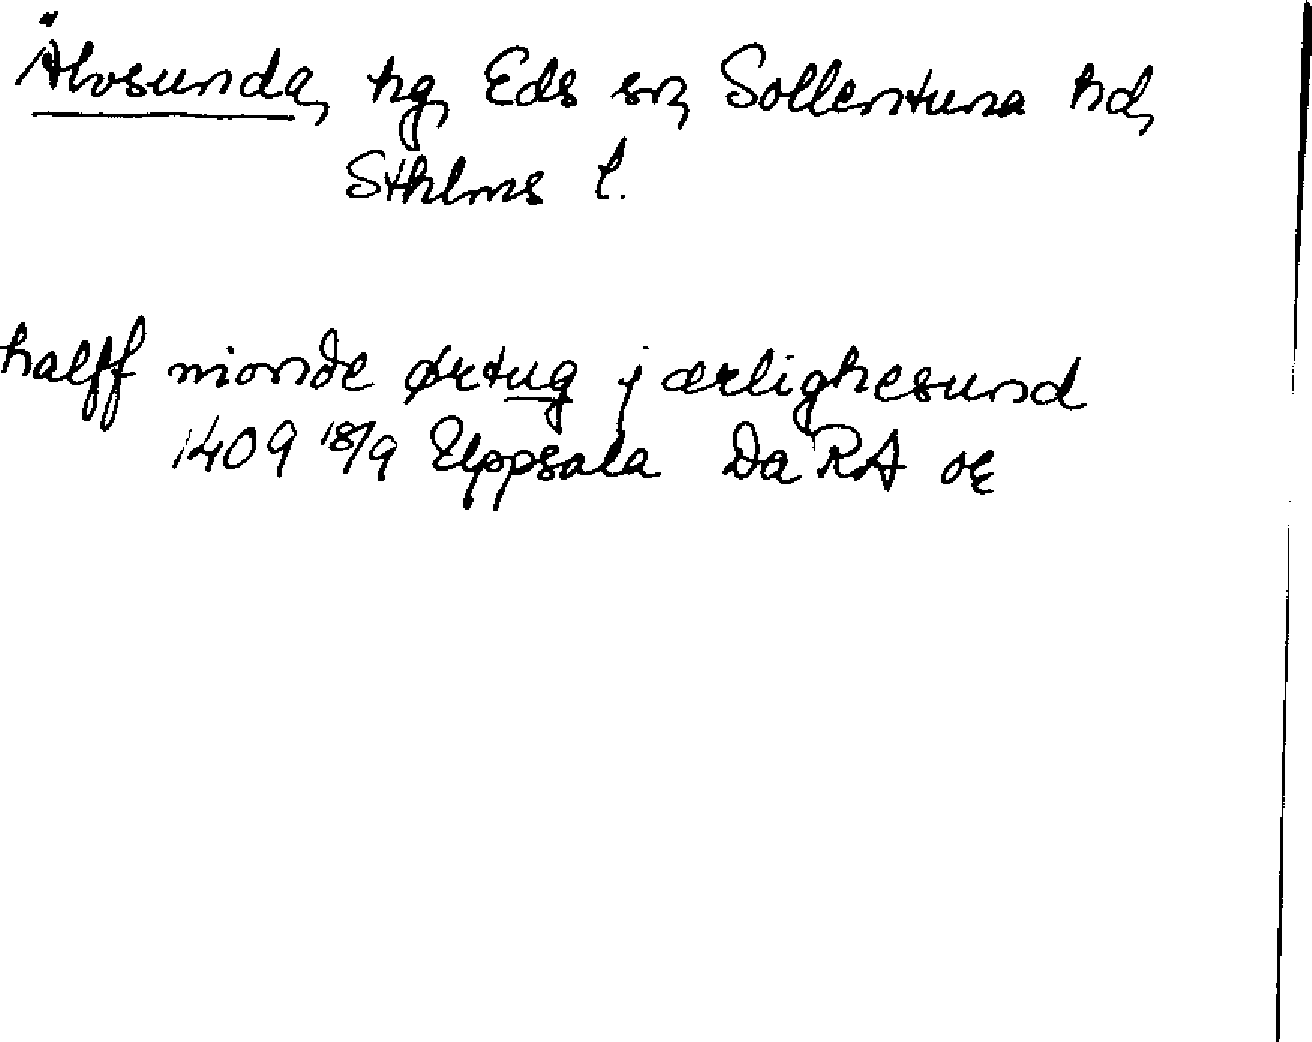 Älvsunda, hg, Eds sn, Sollentuna hd,
Sthlms l.
halff nionde ørtug j ærlighesund
1409 18/9 Uppsala Da RA or